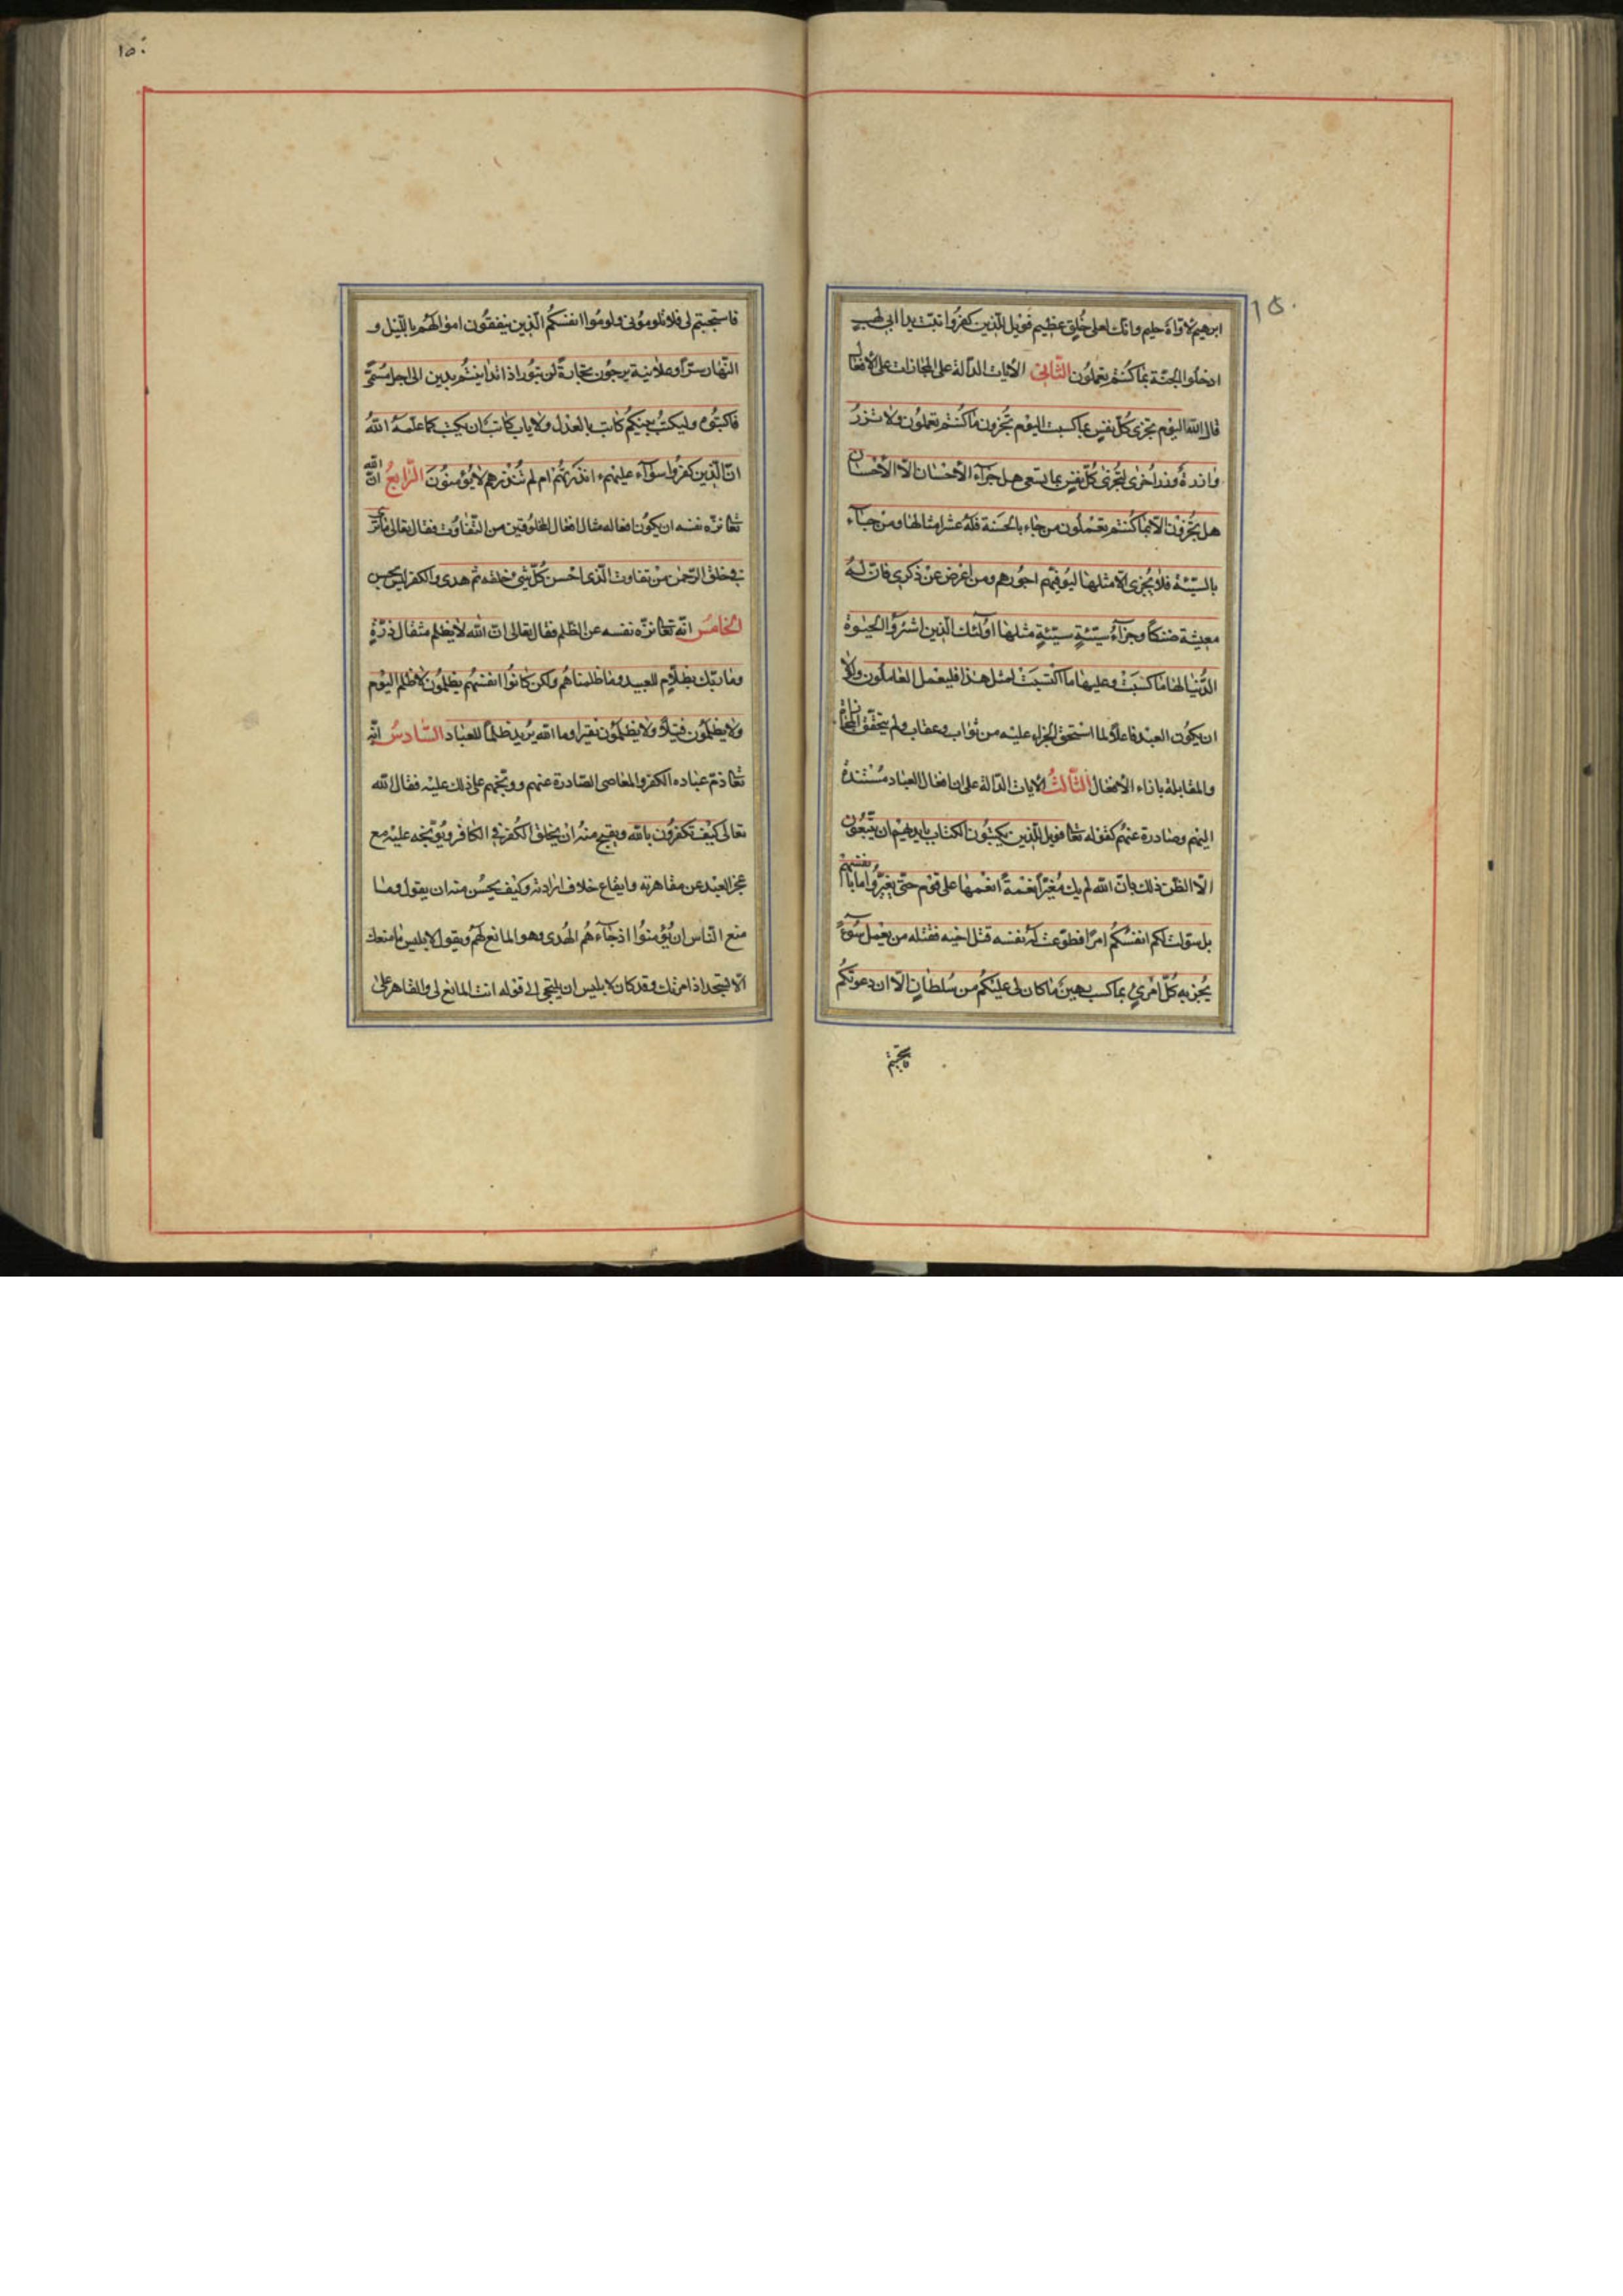 ابرهيم لاوّاه حليم وانّك لعلى خُلق عظيم فويل للّذين كفرُوا تبّت يدا ابى لهب
ادخلوا الجنّة بما كنتُم تعملُون الثّانى الآيات الدّالة على المجازات على الافعال
قال الله اليوم تجزى كلّ نفس بما كسبت اليوم تجزون ما كنتُم تعملون ولا تزرُ
وازرةٌ وزر اُخرى لتُجزى كلّ نفس بما تسعى هل جزآء الاحسان الّا الاحسان
هل تجزون الّا بما كنتم تعملون من جاء بالحسنة فله عشر امثالها ومن جآء
بالسّيّئة فلا يُجزى الّا مثلها ليُوفّيهم اجورهم ومن اعرض عن ذكرى فانّ لهُ
معيشة ضنكاً وجزآءُ سيّئةٍ سيّئةٍ مثلها اولئك الّذين اشتروُا الحيٰوة
الدُّنيا لها ما كسبَتْ وعليها ما اكتسبَتْ لمثل هذا فليعمل العاملُون ولولا
ان يكُون العبد فاعلاً لما استحق الجزاء عليه من ثواب وعقاب ولم يتحقّق المجازات
والمقابلة بازاء الافعال الثّالثُ الايات الدّالة على ان افعال العباد مُستندة
اليهم وصادرة عنهُم كقوله تعا فويل للّذين يكتبُون الكتاب بايديهم ان يتّبعُون
الّا الظّن ذلك بانّ الله لم يك مُغيّراً نعمةً انعمها على قوم حتّى يغيّروا ما بانفسهم
بل سوّلت لكم انفسُكُم امراً فطوّعت لهُ نفسه قتل اخيه فقتله من يعمل سُوءً
يُجز به كُلّ امرئٍ بما كسب رهين ما كان لى عليكُم من سُلطانٍ الّا ان دعوتكُم
١٥٠
فاستجبتم لى فلا تلومُونى ولومُوا انفسكُم الّذين ينفقُون اموالهُم بالليل و
النّهار سرّاً وعلانية يرجُون تجارةً لن تبُور اذا تداينتُم بدين الى اجل مُسمّى
فاكتبُوه وليكتُب بينكُم كاتب بالعدل ولا ياب كاتب ان يكتب كما علّمهُ اللهُ
انّ الّذين كفرُوا سوآء عليهم ءانذرتهُم ام لم تُنذرهم لا يُؤمنُونَ الرّابعُ انّ الله
تعا نزّه نفسه ان يكُون افعاله مثال افعال المخلوقين من التّفاوت فقال تعالى ما ترى
فى خلق الرّحمن من تفاوت الّذى احسن كُلّ شئ خلقه ثم هدى والكفر ليس بحسن
الخامسُ انّه تعا نزّه نفسه عن الظّلم فقال تعالى انّ الله لا يظلم مثقال ذرّةٍ
وما ربّك بظلّام للعبيد وما ظلمناهُم ولكن كانُوا انفسهُم يظلمُون لا ظلم اليَوْم
ولا يظلمُون فتيلاً ولا يظلمُون نقيرا وما الله يُريد ظلماً للعباد السّادسُ انّه
تعا ذمّ عباده الكفر والمعاصى الصّادرة عنهم ووبّخهم على ذلك عليه فقال الله
تعالى كيْف تكفرُون بالله ويقبح منهُ ان يخلق الكُفر فى الكافر ويُوَبّخه عليه مع
عجز العبد عن مقاهرته وايقاع خلاف ارادته وكيف يحسُن منه ان يقول وما
منع النّاس ان يُؤمنُوا اذ جآءهُم الهُدى وهو المانع لهُم ويقول لابليس ما منعك
الّا تسجد اذ امرتك وقد كان لابليس ان يلتجى الى قوله انت المانع لى والقاهر علىّ